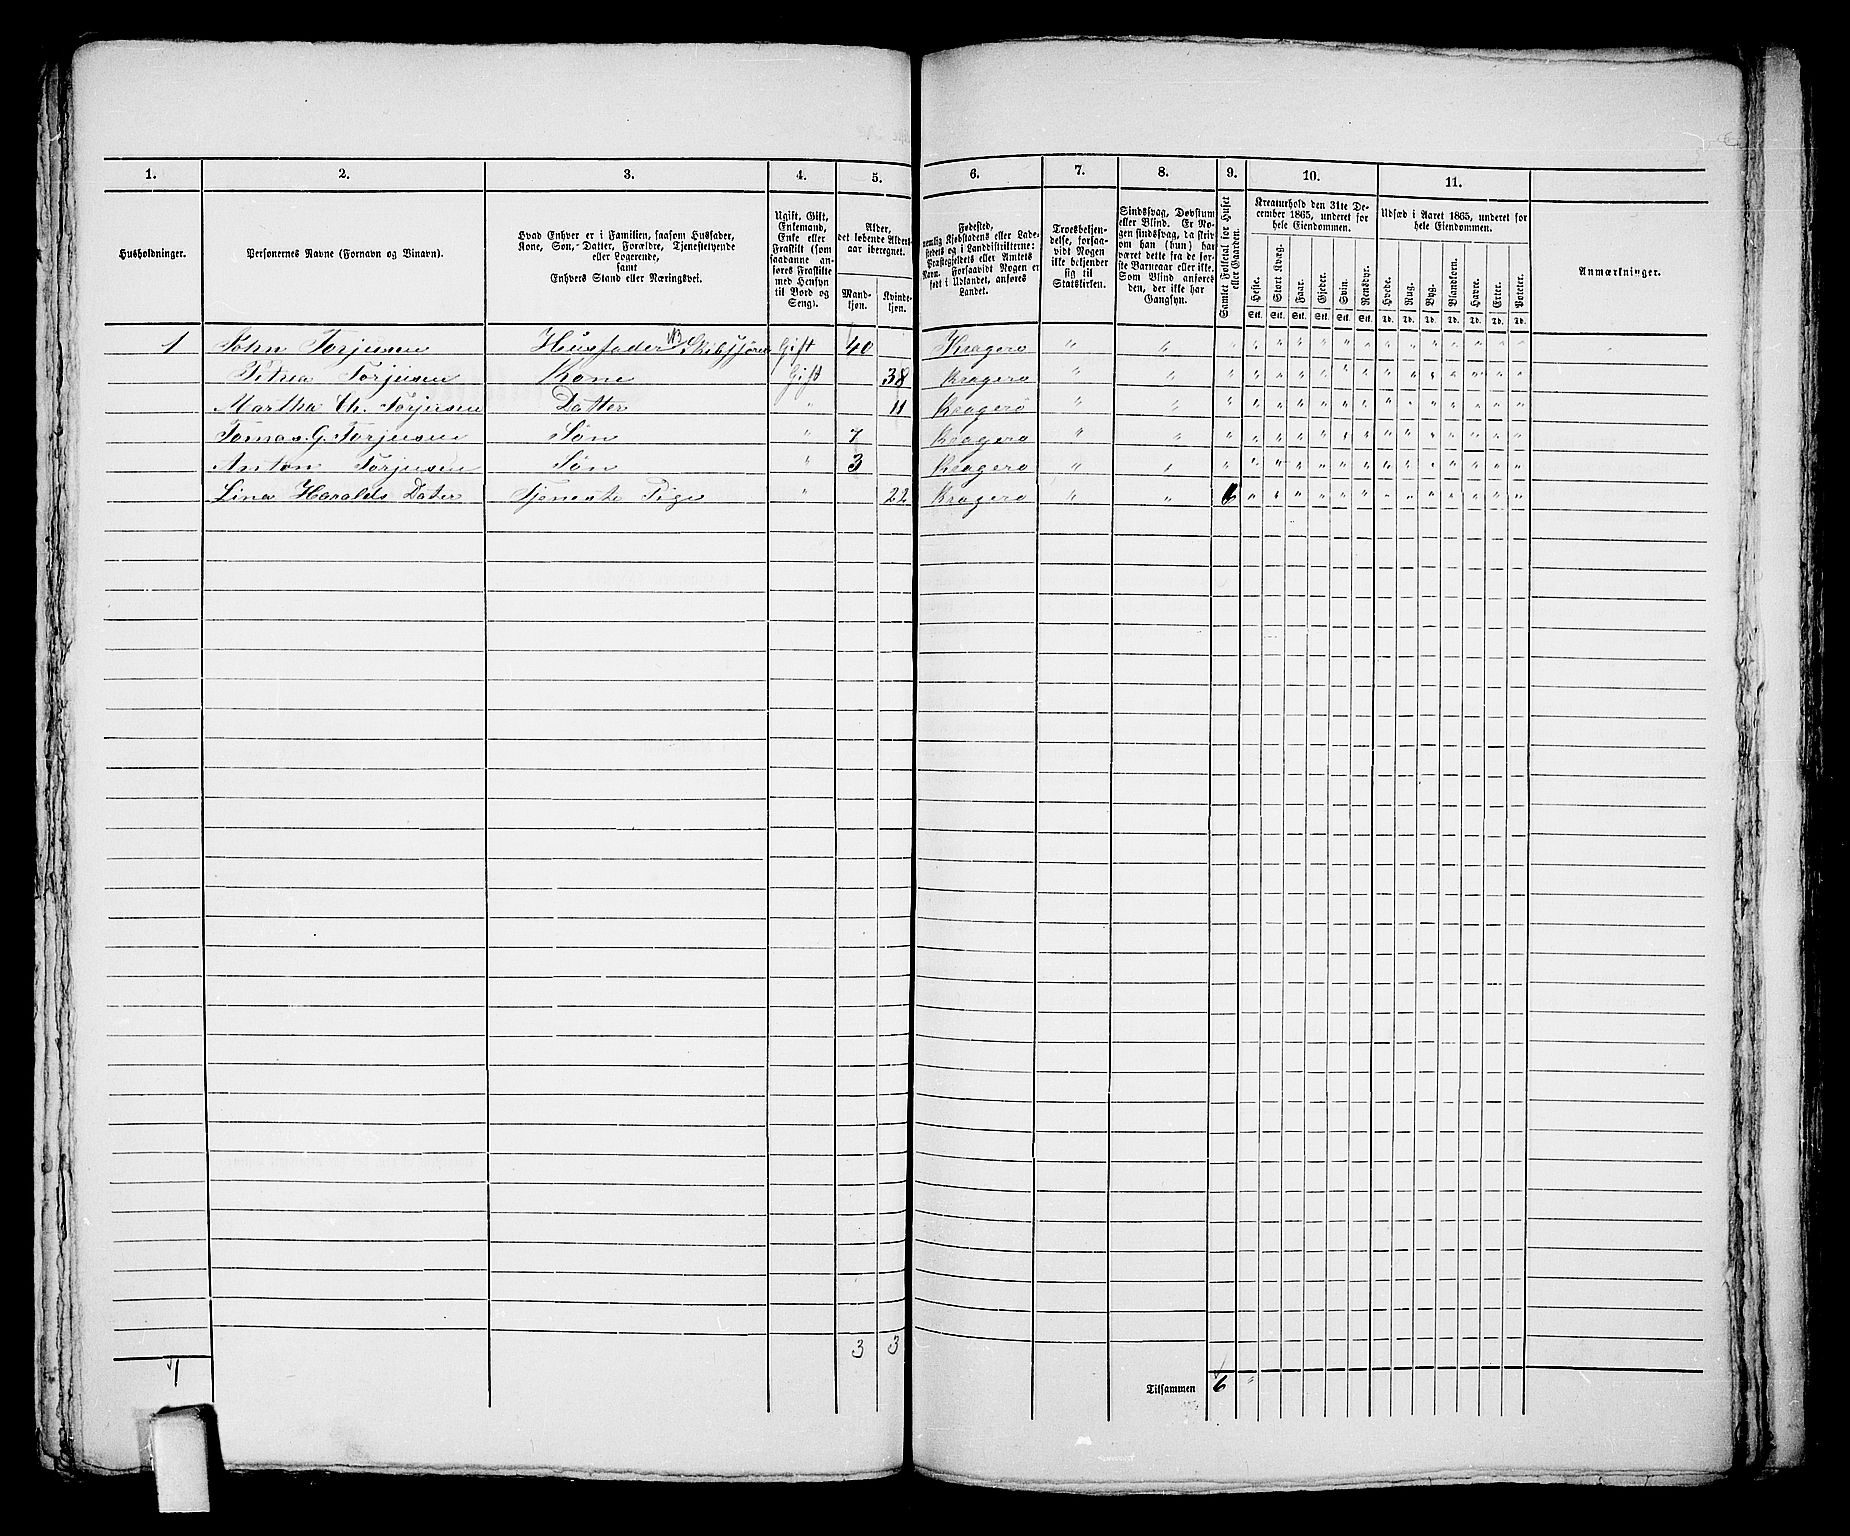 1. 2. 3. 4. 5. 6. 7. 8. 9. 10. 11.
Husholdninger.
Personernes Navne (Fornavn og Binavn).
Hvad Enhver er i Familien, saasom Husfader,
Kone, Søn, Datter, Forældre, Tjenestetyende
eller Logerende,
samt
Enhvers Stand eller Næringsvei.
Ugift, Gift,
Enkemand,
Enke eller
Fraskilt (som
saadanne an-
føres Fraskilte
med Hensyn
til Bord og
Seng).
Alder,
det løbende Alders-
aar iberegnet.
Mand-
kjøn.
Kvinde-
kjøn.
Fødested,
nemlig Kjøbstadens eller Lade-
stedets og i Landdistrikterne:
Præstegjeldets eller Amtets
Navn. Forsaavidt Nogen er
født i Udlandet, anføres
Landet.
Troesbekjen-
delse, forsaa-
vidt Nogen
ikke bekjender
sig til
Statskirken.
Sindssvag, Døvstum
eller Blind. Er No-
gen sindssvag, da skriv
om han (hun) har
været dette fra de før-
ste Barneaar eller ikke.
Som Blind anføres
den, der ikke har
Gangsyn.
Samlet Folketal for Huset
eller Gaarden.
Kreaturhold den 31te De-
cember 1865, underet for
hele Eiendommen.
Heste. Stort Kvæg. Faar. Gjeder. Svin. Rensdyr.
Stk. Stk. Stk. Stk. Stk. Stk.
Udsæd i Aaret 1865, underet for
hele Eiendommen.
Hvede. Rug. Byg. Blandkorn. Havre. Erter. Poteter.
Td. Td. Td. Td. Td. Td. Td.
Anmærkninger.
1 John Torjusen Husfader Gift 40 Kragerø " " " " " " " " " " " " " " " " "
Petrea Torjusen Kone Gift 38 Kragerø " " " " " " " " " " " " " " " "
Martha Th. Torjusen Datter " 11 Kragerø " " " " " " " " " " " " " " " "
Tomas G. Torjusen Søn " 7 Kragerø " " " " " " " " " " " " " " " "
Anton Torjusen Søn " 3 Kragerø " " " " " " " " " " " " " " " "
Lina Haralds Dater Tjeneste Pige " 22 Kragerø " " 6 " " " " " " " " " " " " "
3 3
1
Tilsammen 6 "